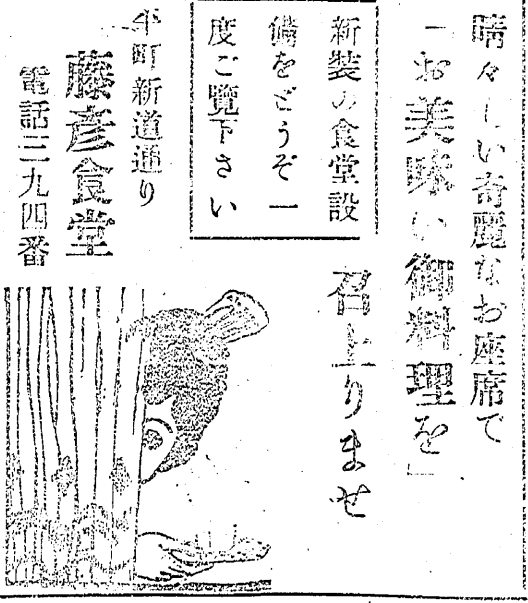 晴々しい奇麗なお座席で
「お美味い御料理を」
召上りませ
新装の食堂設
備をどうぞ一
度ご覧下さい
町新道通り
藤彦食堂
電話三九四番